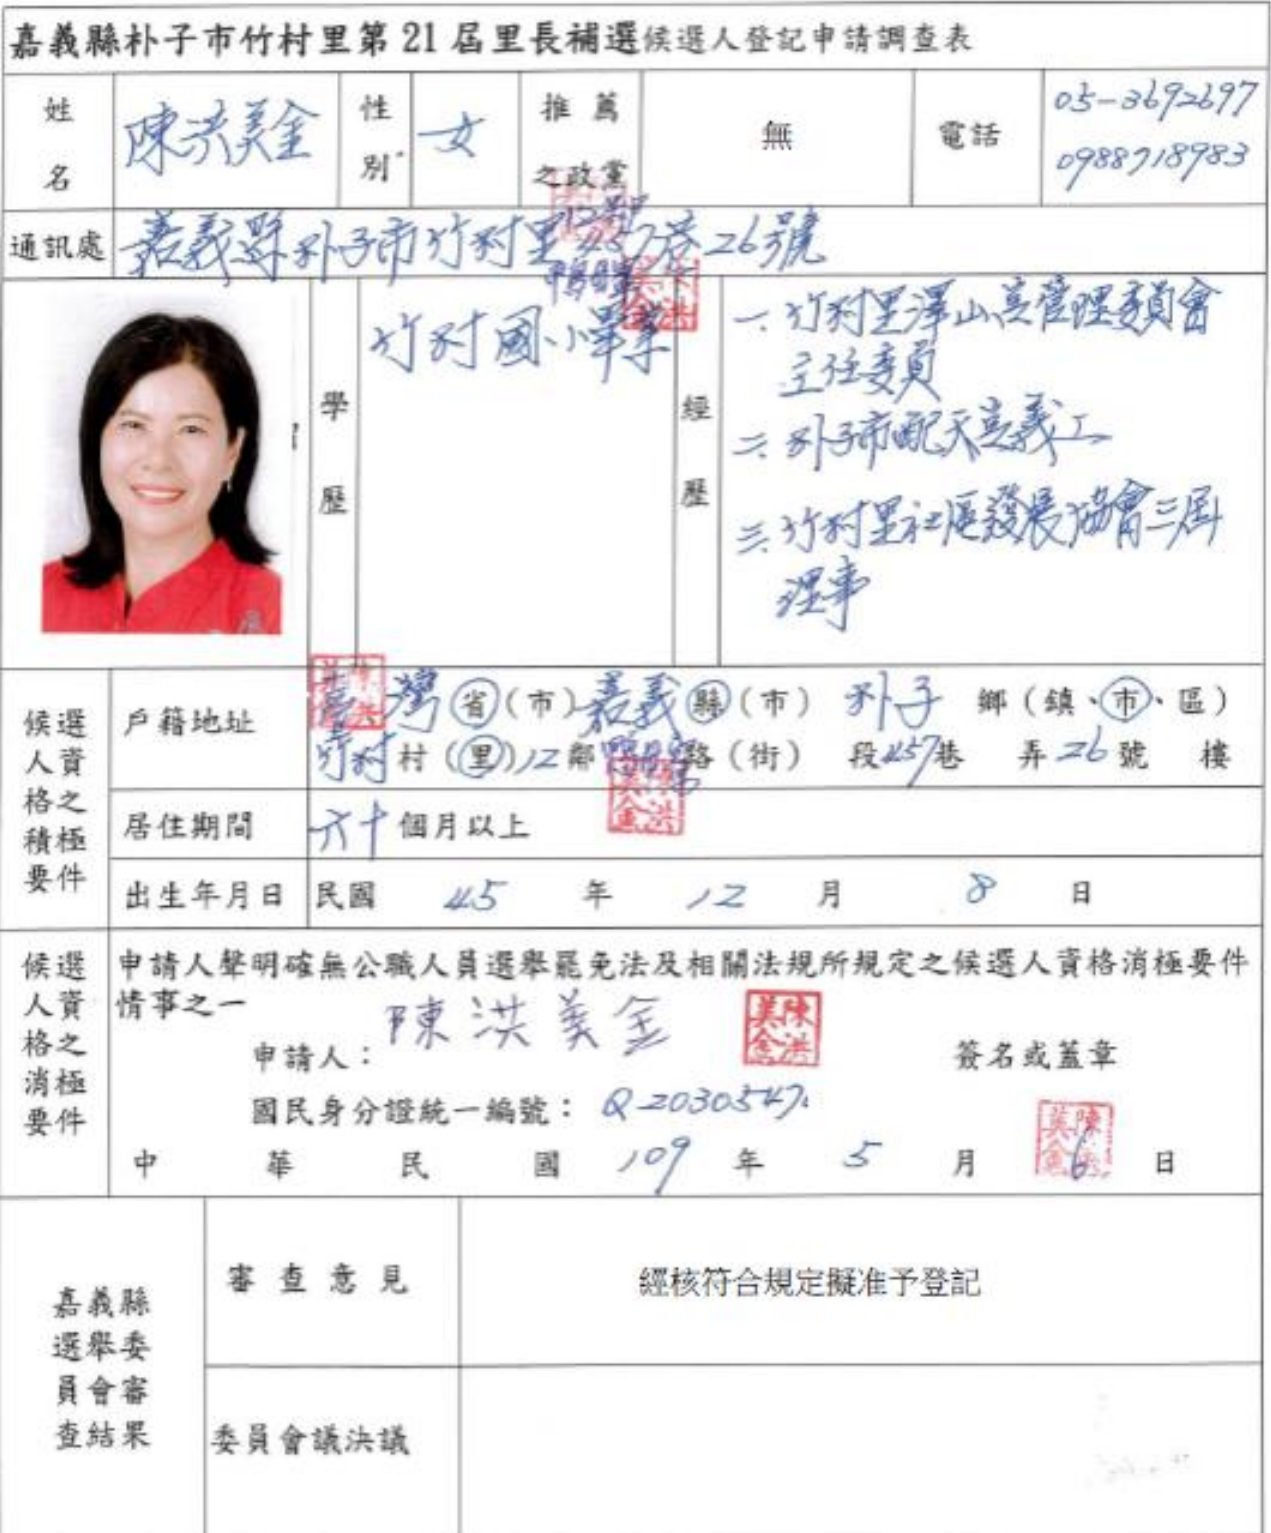 嘉義縣朴子市竹村里第21屆里長補選候選人登記申請調查表
姓名 陳洪美金 性別 女 推薦之政黨 無 電話 05-3692697
0988718983
通訊處 嘉義縣朴子市竹村里12鄰457巷26號
學歷 竹村國小畢業
經歷 一、竹村里澤山宮管理委員會
主任委員
二、朴子市配天宮義工
三、竹村里社區發展協會三屆
理事
候選人資格之積極要件
戶籍地址 臺灣省(市)嘉義縣(市)朴子鄉(鎮、市、區)
竹村村(里)12鄰 路(街) 段457巷 弄26號 樓
居住期間 六十個月以上
出生年月日 民國45年12月8日
候選人資格之消極要件
申請人聲明確無公職人員選舉罷免法及相關法規所規定之候選人資格消極要件
情事之一
申請人：陳洪美金 陳洪美金 簽名或蓋章
國民身分證統一編號：Q2030547
中華民國109年5月6日
嘉義縣選舉委員會審查結果
審查意見 經核符合規定擬准予登記
委員會議決議